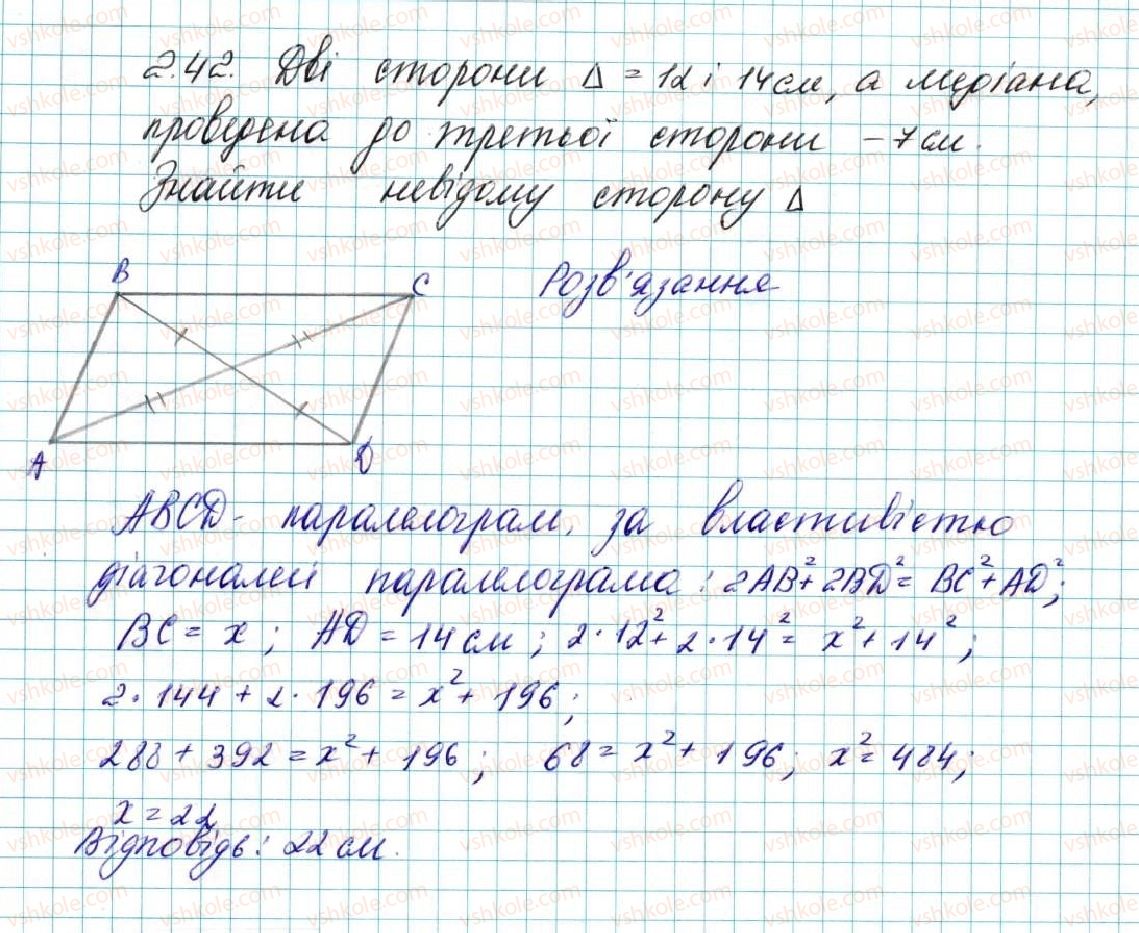 2.42. Дві сторони Δ = 12 і 14 см, а медіана,
проведена до третьої сторони – 7 см.
Знайти невідому сторону Δ
Розв'язання
B
C
A
D
ABCD - паралелограм, за властивістю
діагоналей паралелограма: 2AB²+2BD²= BC²+AD²;
BC = x; AD = 14 см; 2·12²+2·14²= x²+14²;
2·144+2·196=x²+196;
288+392=x²+196; 68=x²+196; x²=484;
x=22
Відповідь: 22 см.